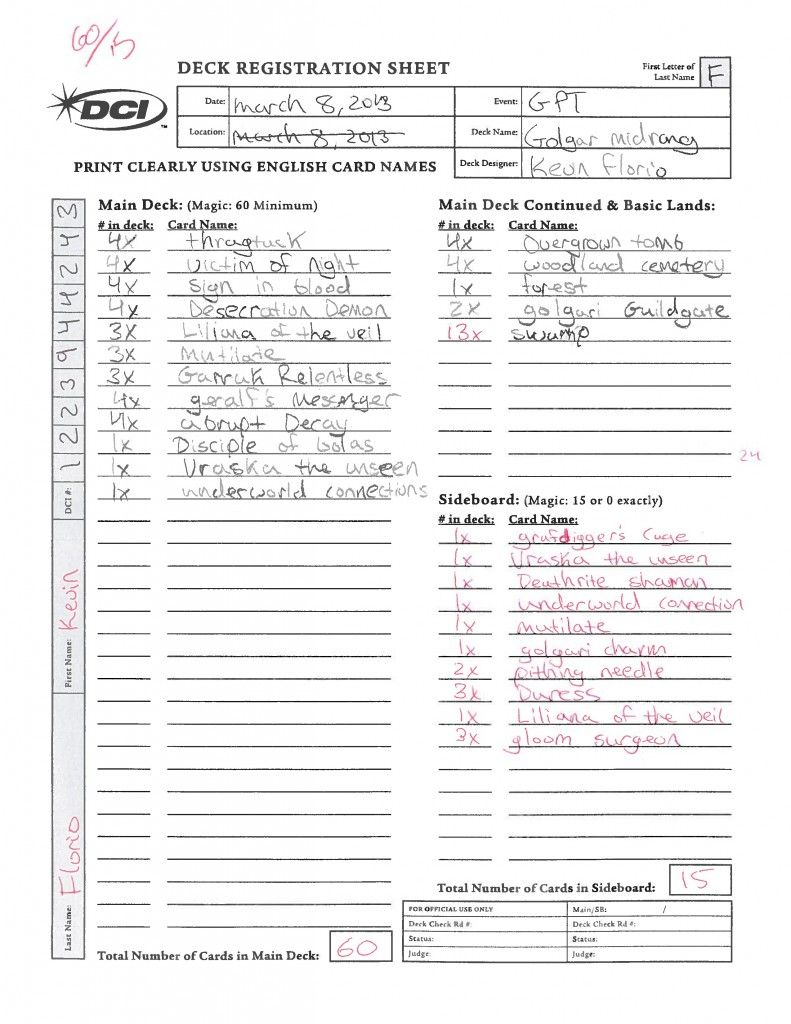 60/15
DECK REGISTRATION SHEET
First Letter of Last Name F
DCI
Date: march 8, 2013
Event: GPT
Location: march 8, 2013
Deck Name: Golgar midrang
PRINT CLEARLY USING ENGLISH CARD NAMES
Deck Designer: Kevin Florio
Main Deck: (Magic: 60 Minimum)
# in deck: Card Name:
4x thragtuck
4x victim of night
4x Sign in blood
4x Desecration Demon
3x Liliana of the veil
3x Mutilate
3x Garruk Relentless
4x geralf's Messenger
4x abrupt Decay
1x Disciple of bolas
1x Vraska the unseen
1x underworld connections
Total Number of Cards in Main Deck: 60
Main Deck Continued & Basic Lands:
# in deck: Card Name:
4x Overgrown tomb
4x woodland cemetery
1x forest
2x golgari Guildgate
13x swamp
24
Sideboard: (Magic: 15 or 0 exactly)
# in deck: Card Name:
1x grafdigger's Cage
1x Vraska the unseen
1x Deathrite shaman
1x underworld connection
1x mutilate
1x golgari charm
2x pithing needle
3x Duress
1x Liliana of the veil
3x gloom surgeon
Total Number of Cards in Sideboard: 15
FOR OFFICIAL USE ONLY
Main/SB: /
Deck Check Rd #:
Deck Check Rd #:
Status:
Status:
Judge:
Judge:
Last Name: Florio
First Name: Kevin
DCI #: 1223944243